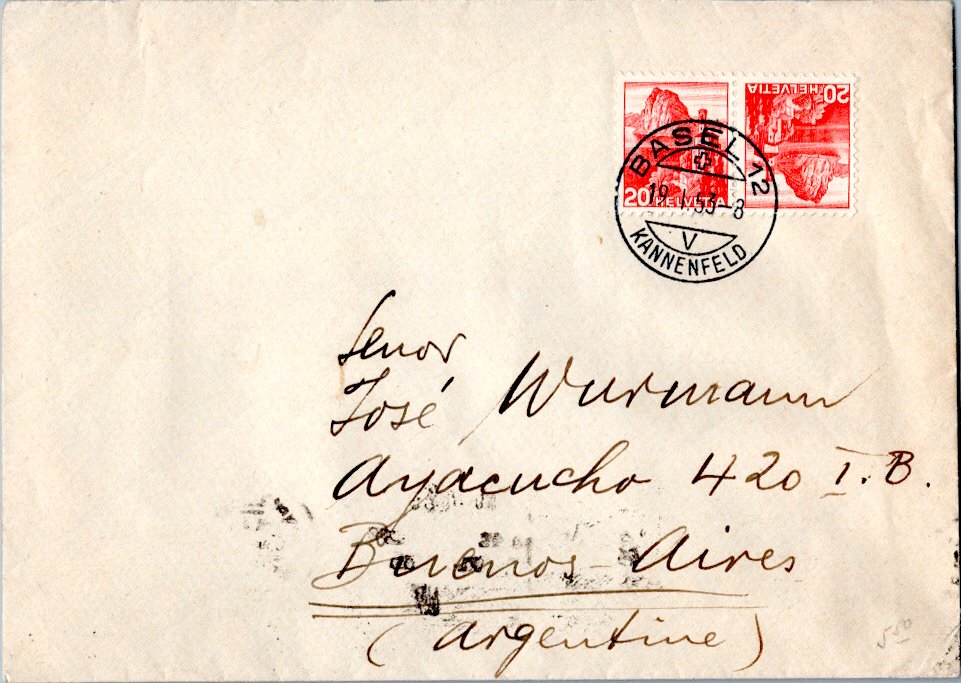 20 HELVETIA
20 HELVETIA
BASEL 12
19.I.53-8
V
KANNENFELD
Senor
José Wurmann
Ayacucho 420 I.B.
Buenos-Aires
(Argentine)